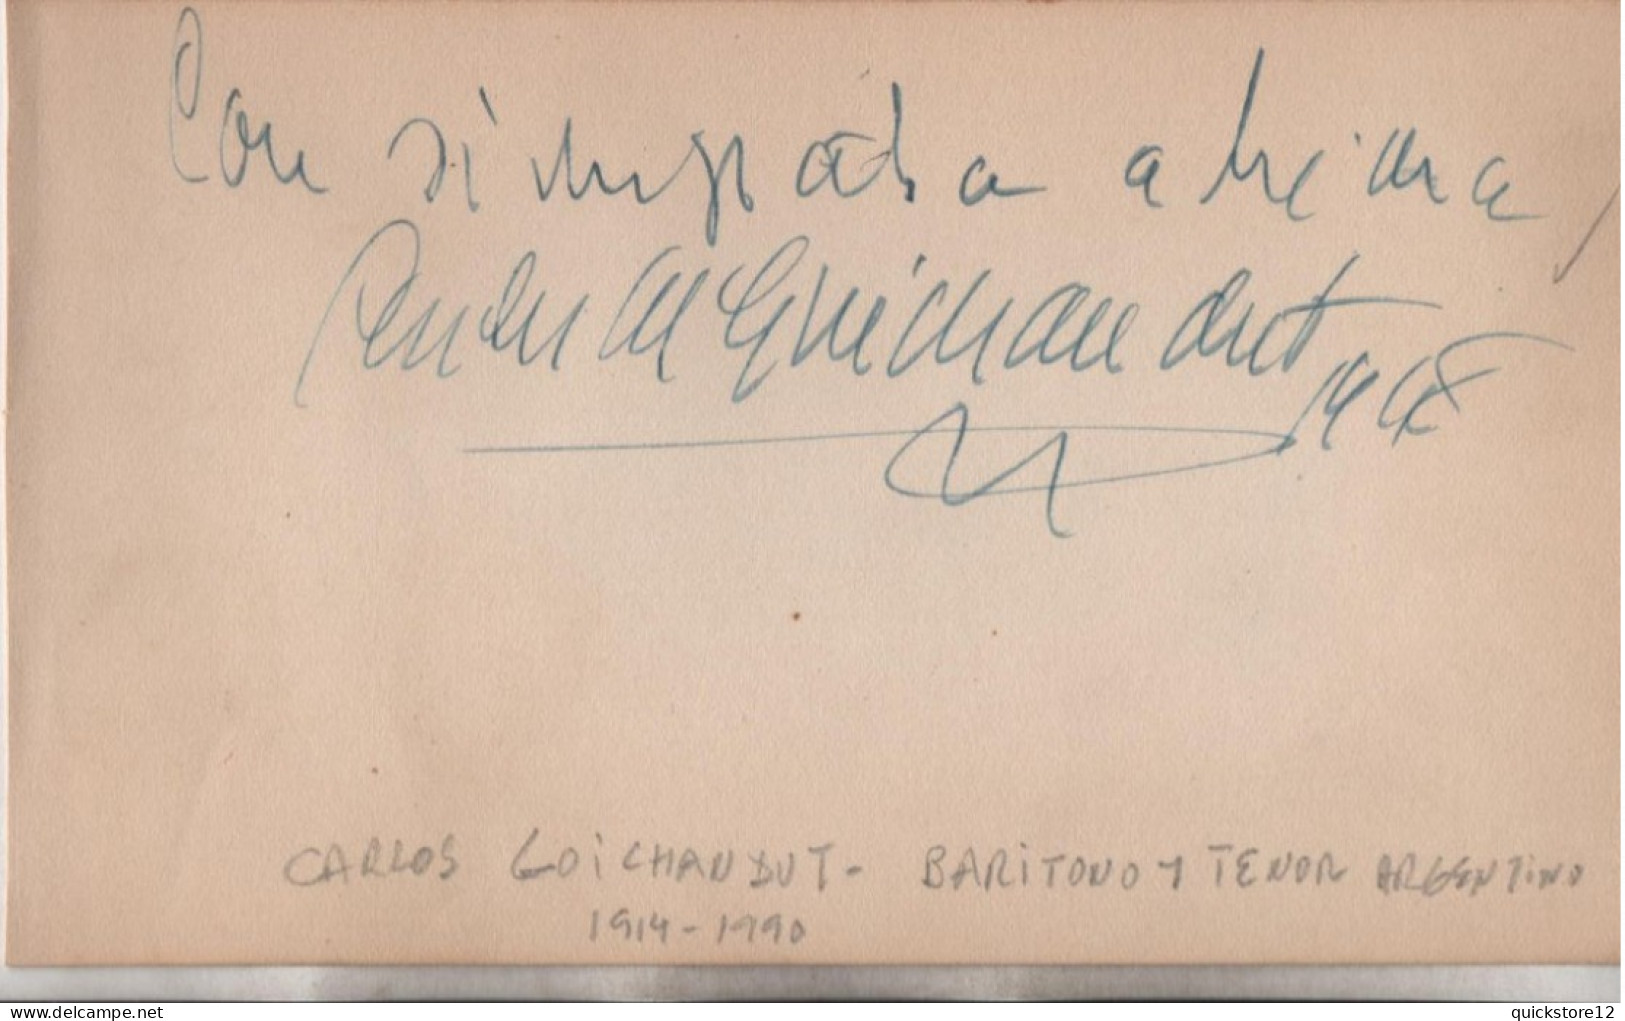 Con simpatia a
Guichandut
1948
CARLOS GOiCHANDUT - BARiTONO Y TENOR ARGENTiNO
1914 - 1990
www.delcampe.net
quickstore12